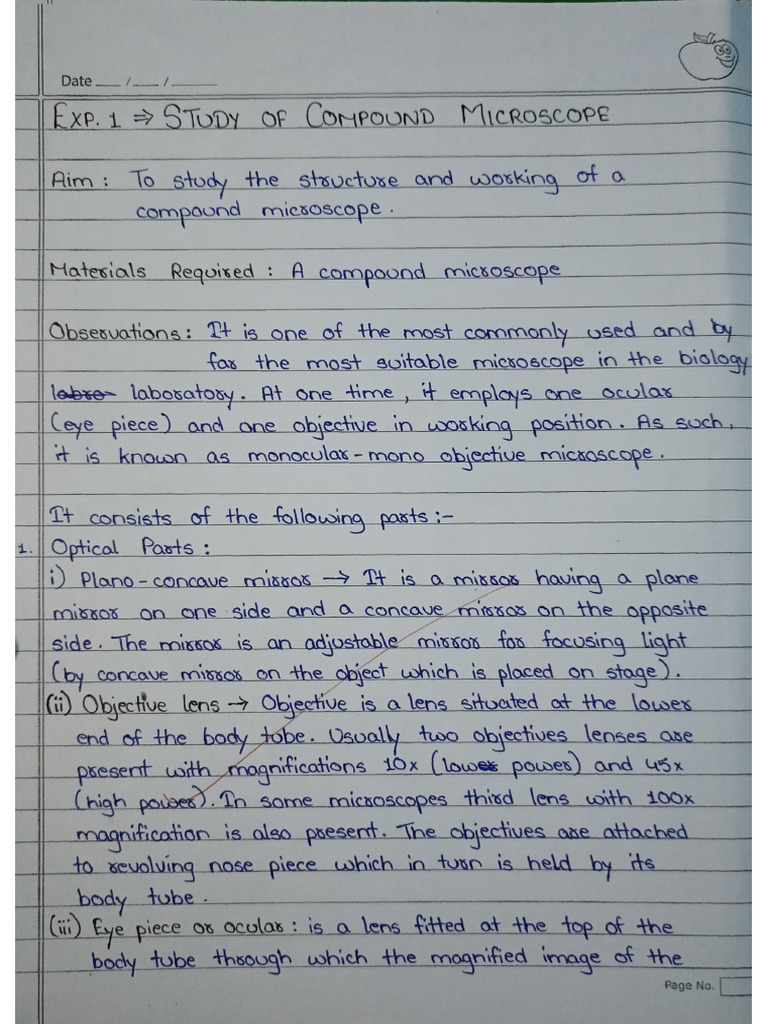 Date ___ / ___ / _____
EXP. 1 ⇒ STUDY OF COMPOUND MICROSCOPE
Aim : To study the structure and working of a
compound microscope.
Materials Required : A compound microscope
Observations : It is one of the most commonly used and by
far the most suitable microscope in the biology
labro- laboratory. At one time, it employs one ocular
(eye piece) and one objective in working position. As such,
it is known as monocular-mono objective microscope.
It consists of the following parts :-
1. Optical Parts :
i) Plano-concave mirror → It is a mirror having a plane
mirror on one side and a concave mirror on the opposite
side. The mirror is an adjustable mirror for focusing light
(by concave mirror on the object which is placed on stage).
(ii) Objective lens → Objective is a lens situated at the lower
end of the body tube. Usually two objectives lenses are
present with magnifications 10x (lower power) and 45x
(high power). In some microscopes third lens with 100x
magnification is also present. The objectives are attached
to revolving nose piece which in turn is held by its
body tube.
(iii) Eye piece or ocular : is a lens fitted at the top of the
body tube through which the magnified image of the
Page No.